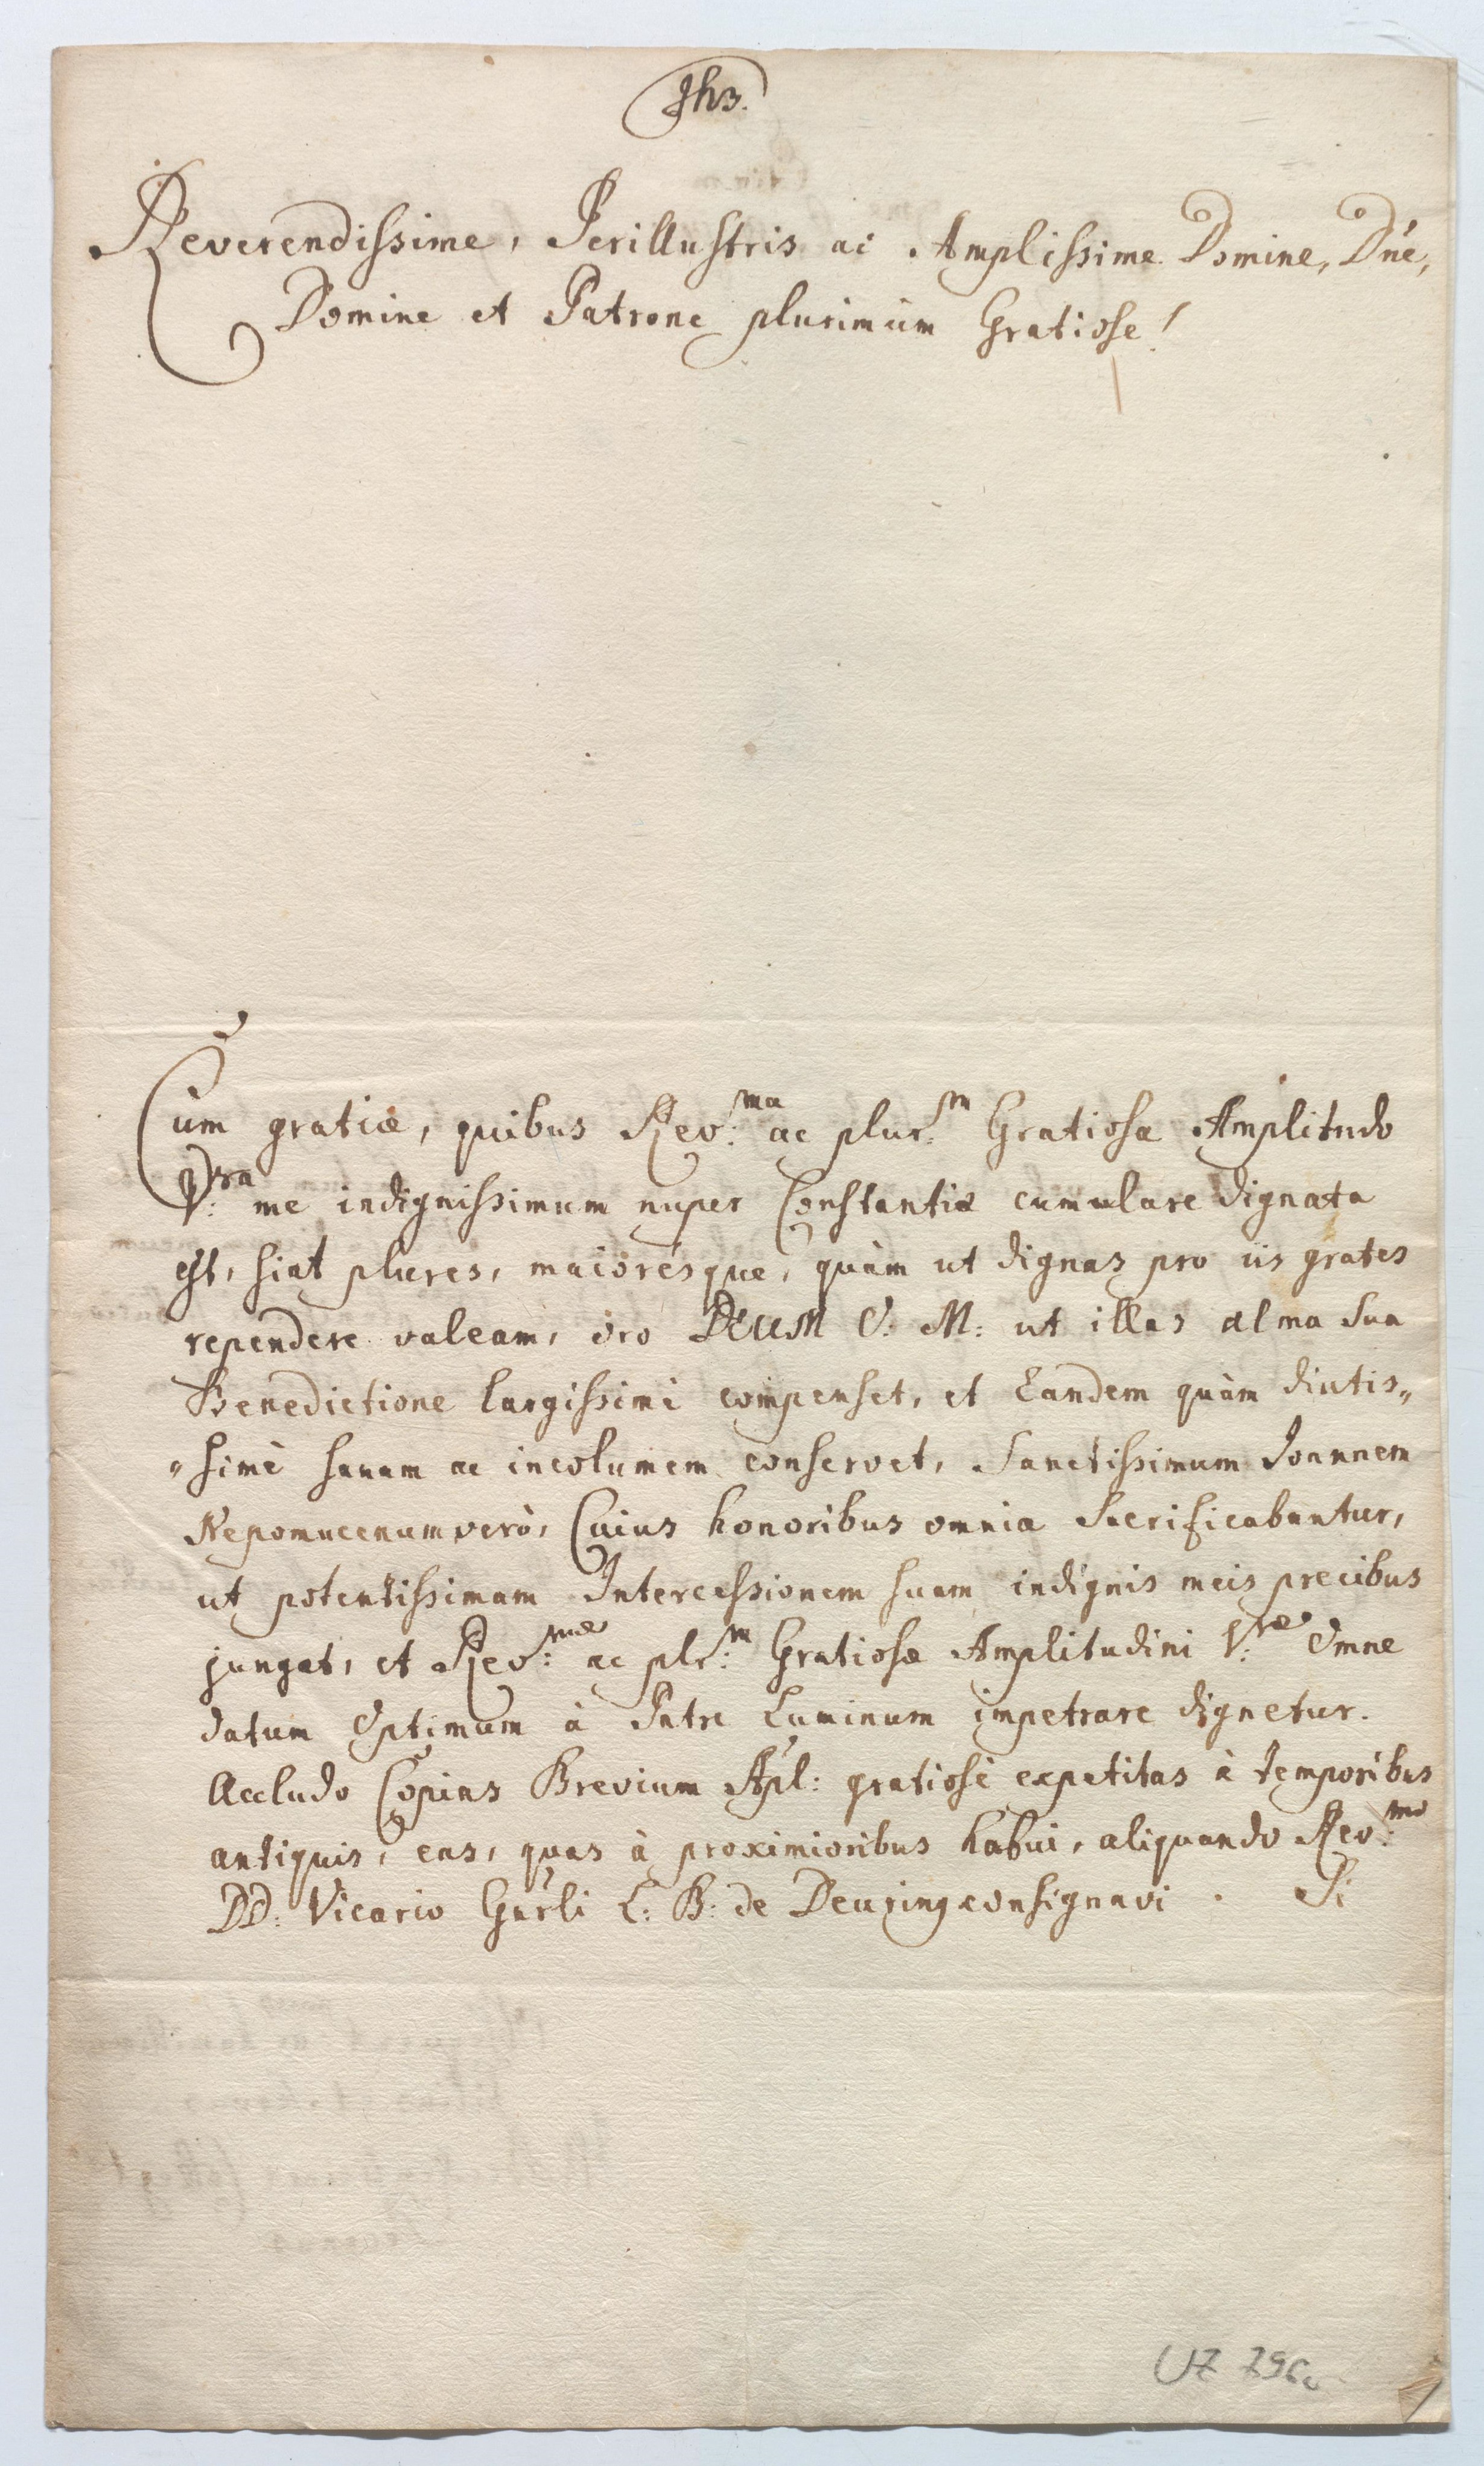 Jhs.
Reverendissime, Perillustris ac Amplissime Domine, Dn̄e,
Domine et Patrone plurimùm Gratiose!
Cùm gratiæ, quibus Rev:ma ac plur:m Gratiosa Amplitudo
V:ra me indignissimum nuper Constantiæ cumulare dignata
est, siat plures, maiorésque, quàm ut dignas pro iis grates
rependere valeam, oro DEUM O: M: ut illas alma sua
Benedictione largissimè compenset, et Eandem quàm diutis„
„simè sanam ac incolumem conservet, Sanctissimum Joannem
Nepomucenum verò, Cuius honoribus omnia sacrificabantur,
ut potentissimam Intercessionem suam indignis meis precibus
jungat, et Rev:mæ ac plr:m Gratiosæ Amplitudini V:ræ Omne
datum Optimum à Patre Luminum impetrare dignetur.
Accludo Copias Brevium Apl: gratiosè expetitas à temporibus
antiquis, eas, quas à proximioribus habui, aliquando Rev:mo
DD: Vicario Gn̄rli L: B: de Deuring consignavi. Si
UZ 296